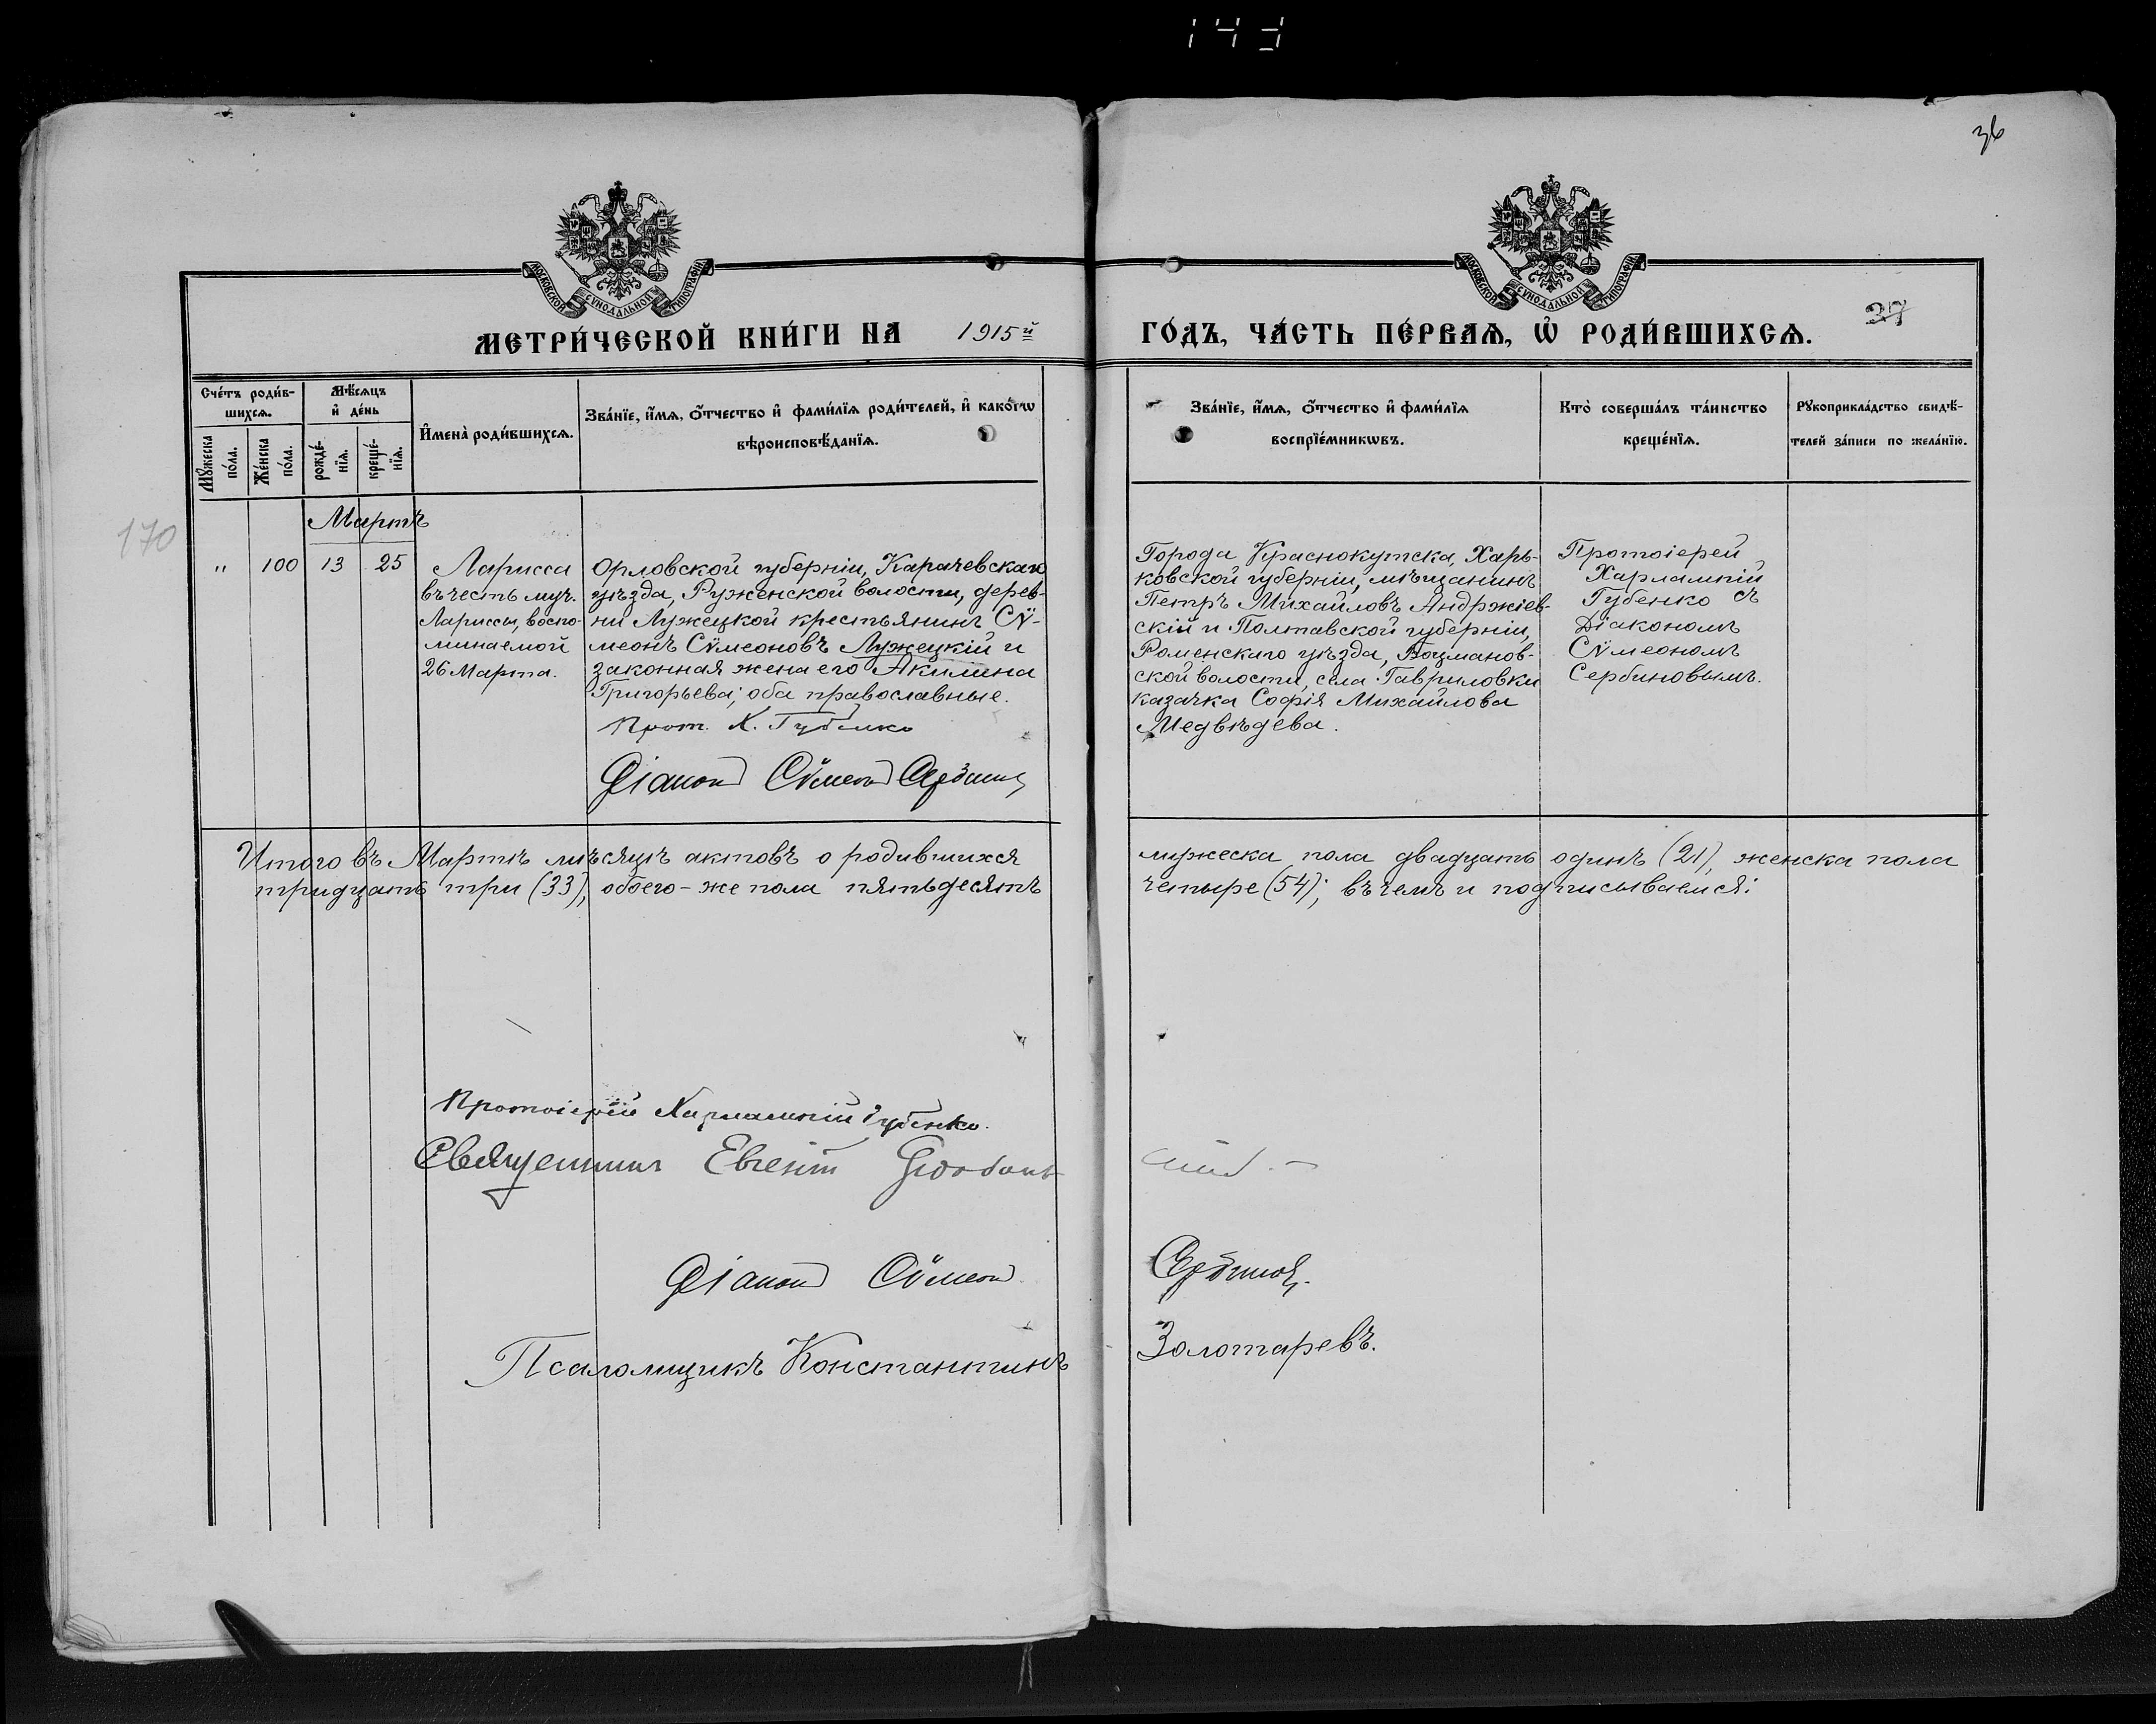 143
36
МОСКОВСКОЙ СѴНОДАЛЬНОЙ ТИПОГРАФІИ
МОСКОВСКОЙ СѴНОДАЛЬНОЙ ТИПОГРАФІИ
МЕТРИ́ЧЕСКОЙ КНИ́ГИ НА 1915й ГО́ДЪ, ЧА́СТЬ ПЕ́РВАѦ, Ѡ҆ РОДИ́ВШИХСѦ.
27
Сче́тъ роди́в-
шихсѧ.
Мꙋ́жеска
по́ла.
Же́нска
по́ла.
Мѣ́сѧцъ
и҆ де́нь
рожде́-
нїѧ.
креще́-
нїѧ.
И҆мена̀ роди́вшихсѧ.
Зва́нїе, и҆́мѧ, ѻ҆́тчество и҆ фами́лїѧ роди́телей, и҆ како́гѡ
вѣроисповѣ́данїѧ.
Зва́нїе, и҆́мѧ, ѻ҆́тчество и҆ фами́лїѧ
воспрїе́мникѡвъ.
Кто̀ соверша́лъ та́инство
креще́нїѧ.
Рꙋкоприкла́дство свидѣ́-
телей за́писи по жела́нїю.
170
Мартъ
" 100 13 25
Ларисса
въ честь муч.
Лариссы, воспо-
минаемой
26 Марта.
Орловской губерніи, Карачевскаго
уѣзда, Руженской волости, дерев-
ни Лужецкой крестьянинъ Сѵ-
меонъ Сѵмеоновъ Лужецкій и
законная жена его Акилина
Григорьева; оба православные.
Прот. Х. Губенко
Діаконъ Сѵмеонъ Сербиновъ
Города Краснокутска, Харь-
ковской губерніи, мѣщанинъ
Петръ Михайловъ Андржіев-
скій и Полтавской губерніи,
Роменскаго уѣзда,
ской волости, села Гавриловки
казачка Софія Михайлова
Медвѣдева.
Протоіерей
Харлампій
Губенко съ
Діакономъ
Сѵмеономъ
Сербиновымъ.
Итого въ Мартѣ мѣсяцѣ актовъ о родившихся мужеска пола двадцать одинъ (21), женска пола
тридцать три (33), обоего-же пола пятьдесятъ четыре (54); въ чемъ и подписываемся:
Протоіерей Харлампій Губенко.
Священникъ Евгеній
Діаконъ Сѵмеонъ Сербиновъ.
Псаломщикъ Константинъ Золотаревъ.